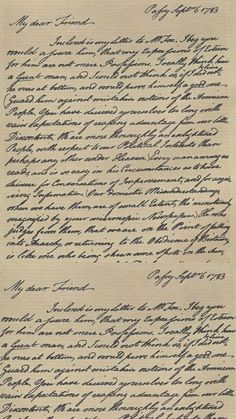 Passy Sept. 6. 1783
My dear Friend.
Inclos'd is my letter to Mr Fox. I beg you
would assure him, that my Expressions of Esteem
for him are not mere Professions. I really think him
a Great man; and I could not think so, if I did not
he was at bottom, and would prove himself a good one.
Guard him against mistaken notions of the American
People. You have deceived yourselves too long with
vain Expectations of reaping advantage from our little
Discontents. We are more thoroughly an enlightened
People, with respect to our Political Interests than
perhaps any other under Heaven. Every man among us
reads; and is so easy in his Circumstances as to have
leisure for Conversations of Improvement, and for acqui-
-ring Information. Our domestic Misunderstandings,
when we have them, are of small Extent, tho monstrously
magnified by your microscopic Newspapers. He who
judges from them, that we are on the Point of falling
into Anarchy, or returning to the Obedience of Britain,
is like one who being shewn some spots in the Sun,
Passy Sept. 6. 1783
My dear Friend.
Inclos'd is my letter to Mr Fox. I beg you
would assure him, that my Expressions of Esteem
for him are not mere Professions. I really think him
a Great man; and I could not think so, if I did not
he was at bottom, and would prove himself a good one.
Guard him against mistaken notions of the American
People. You have deceived yourselves too long with
vain Expectations of reaping advantage from our little
Discontents. We are more thoroughly an enlightened